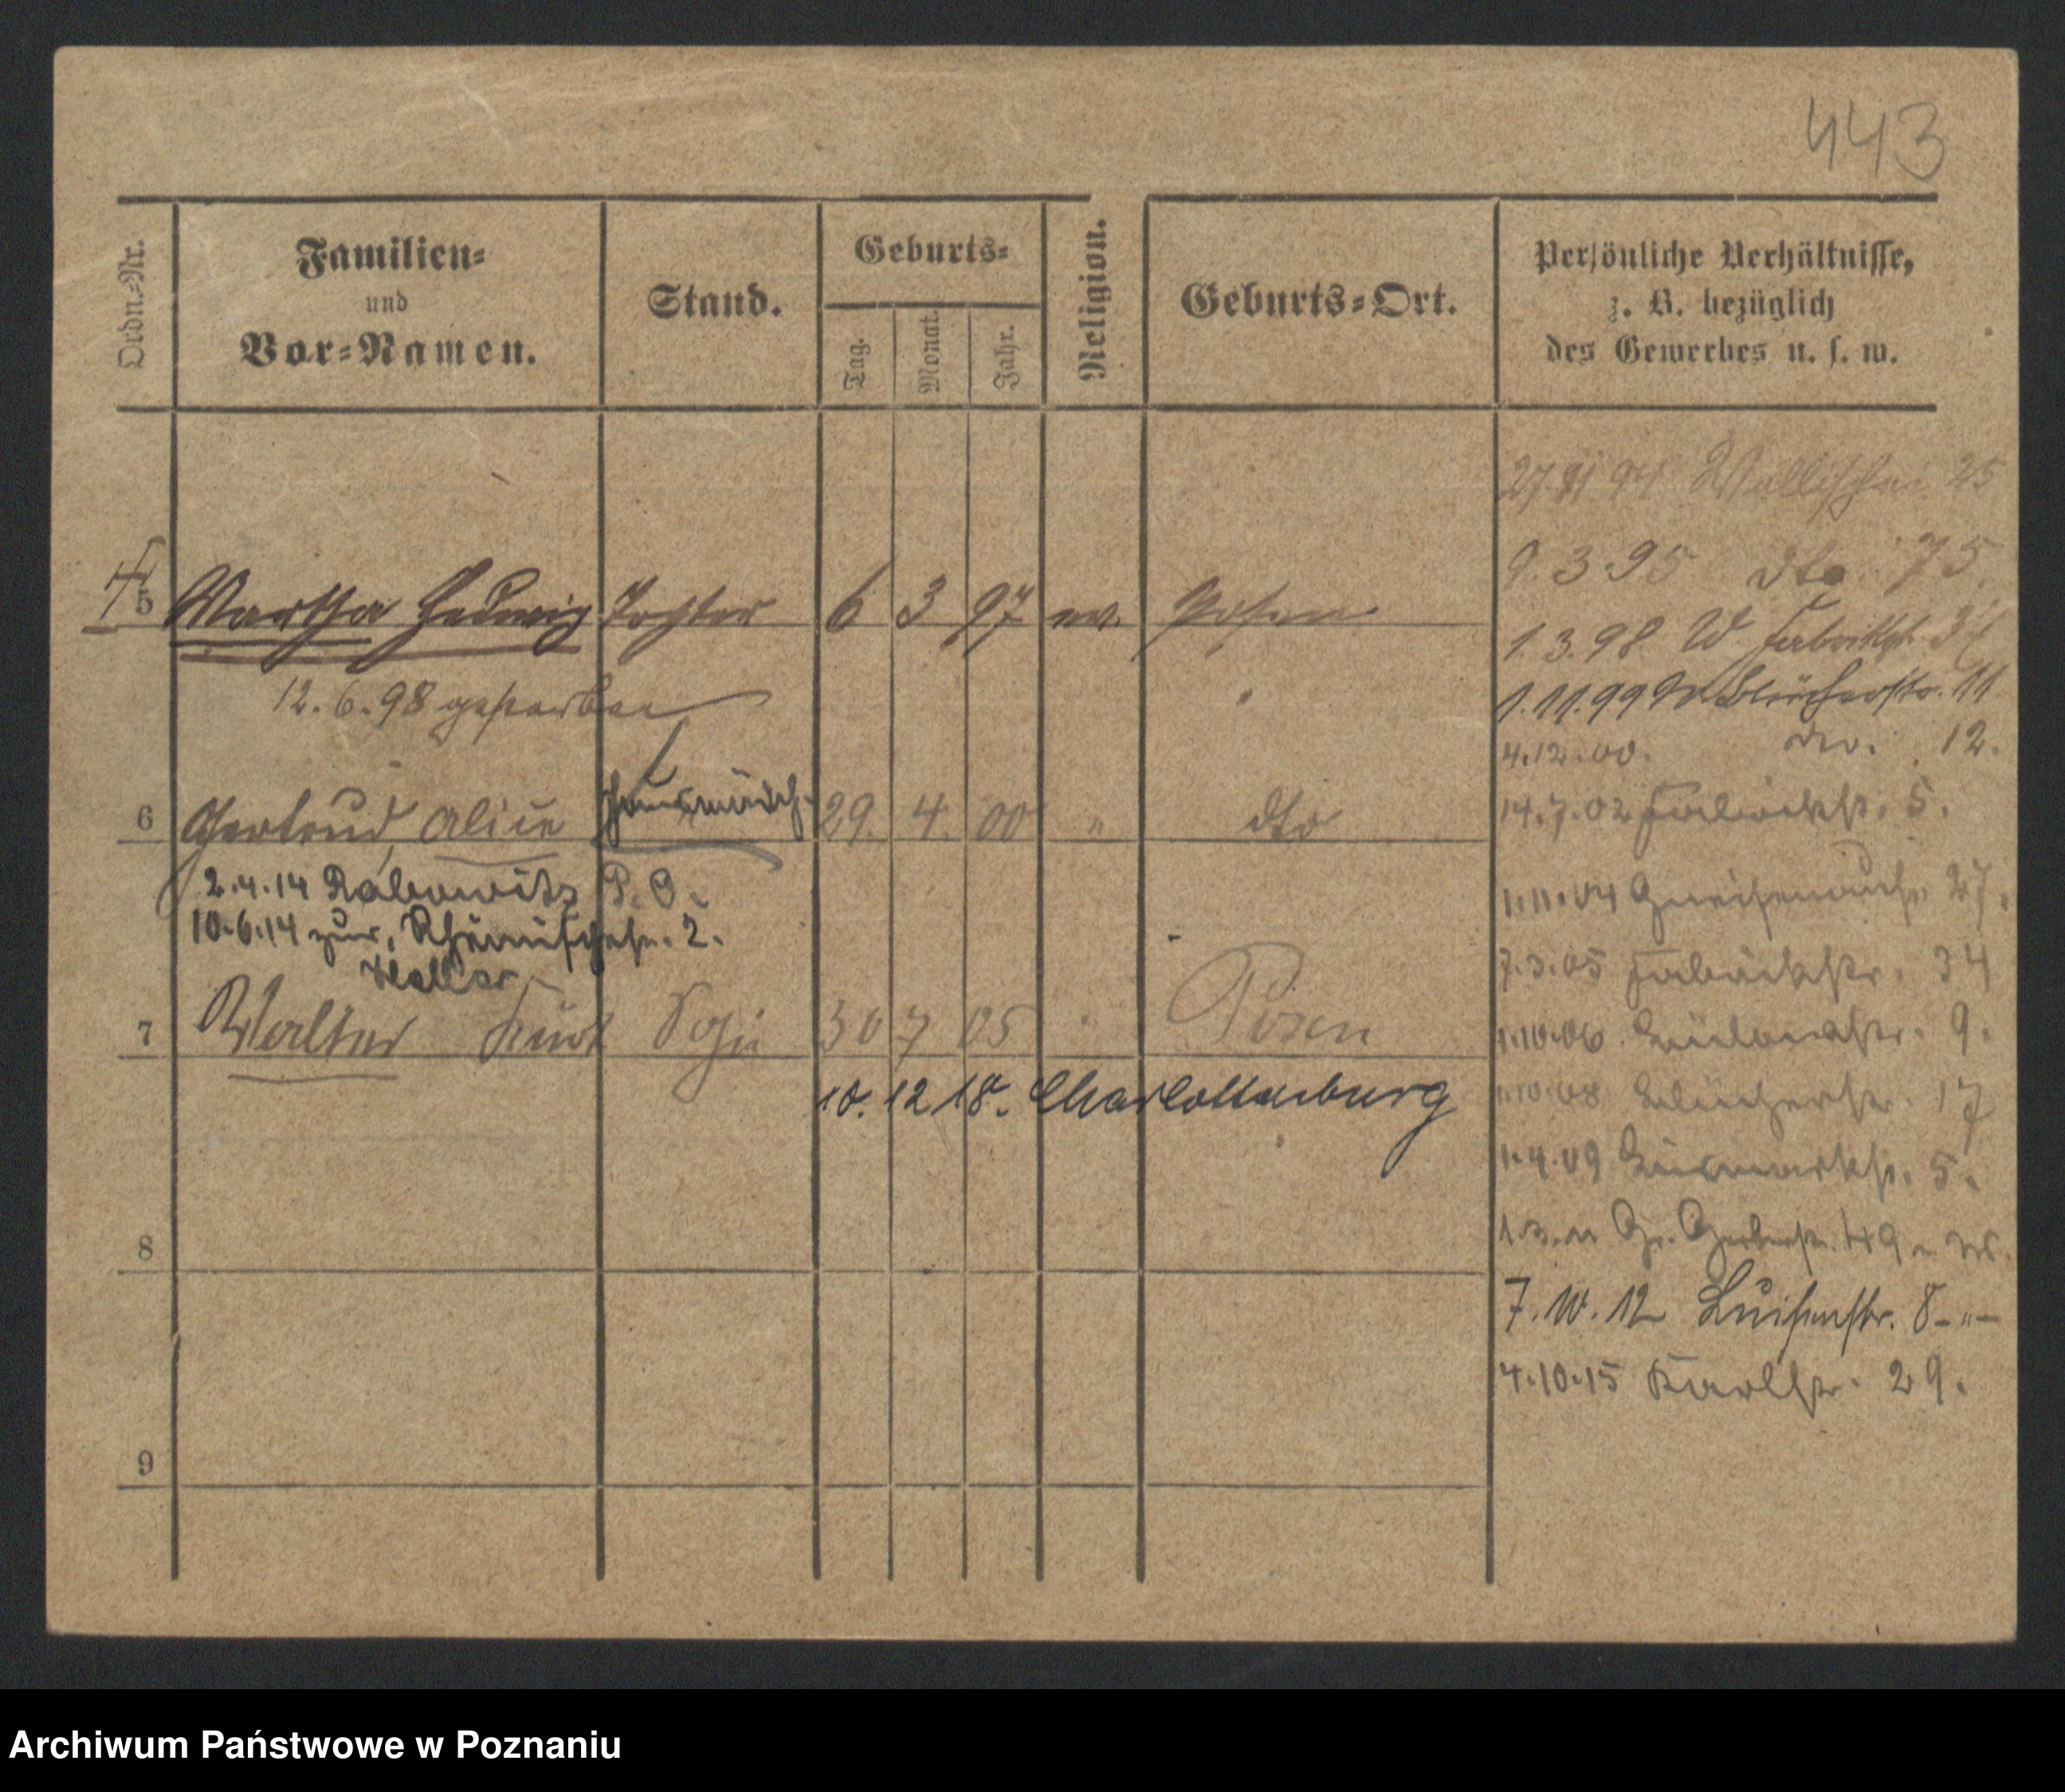 443
Ordn.-Nr.
Familien-
und
Vor-Namen.
Stand.
Geburts-
Tag.
Monat.
Jahr.
Religion.
Geburts-Ort.
Persönliche Verhältnisse,
z. B. bezüglich
des Gewerbes u. s. w.
27. 94 Wallischei 25
9.3.95 dto. 75.
5 Martha Hedwig Tochter 6 3 97 ev. Posen
1.3.98 W. Fabrikst.
12.6.98 gestorben
1.11.99 W. Blücherstr. 11
4.12.00. do. 12.
6 Gertrud Alice Hausmädch. 29. 4. 00 " dto
14.7.02 Fabrikst. 5.
2.4.14 Rabowitz P. O.
1.11.04 Gneisenaust. 27.
10.6.14 zur. 2.
Haller
7.3.05 Fabrikstr. 34
7 Walter Kurt 30 7 05 " Posen
1.10.06 9.
10. 12 18. Charlottenburg
1.10.08 Blücherstr. 17
1.4.09 Bismarckst. 5.
8
1.3.11 Gr. Gerberst. 49
7.10.12 Luisenstr. 8 - " -
4.10.15 Karlstr. 29.
9
Archiwum Państwowe w Poznaniu